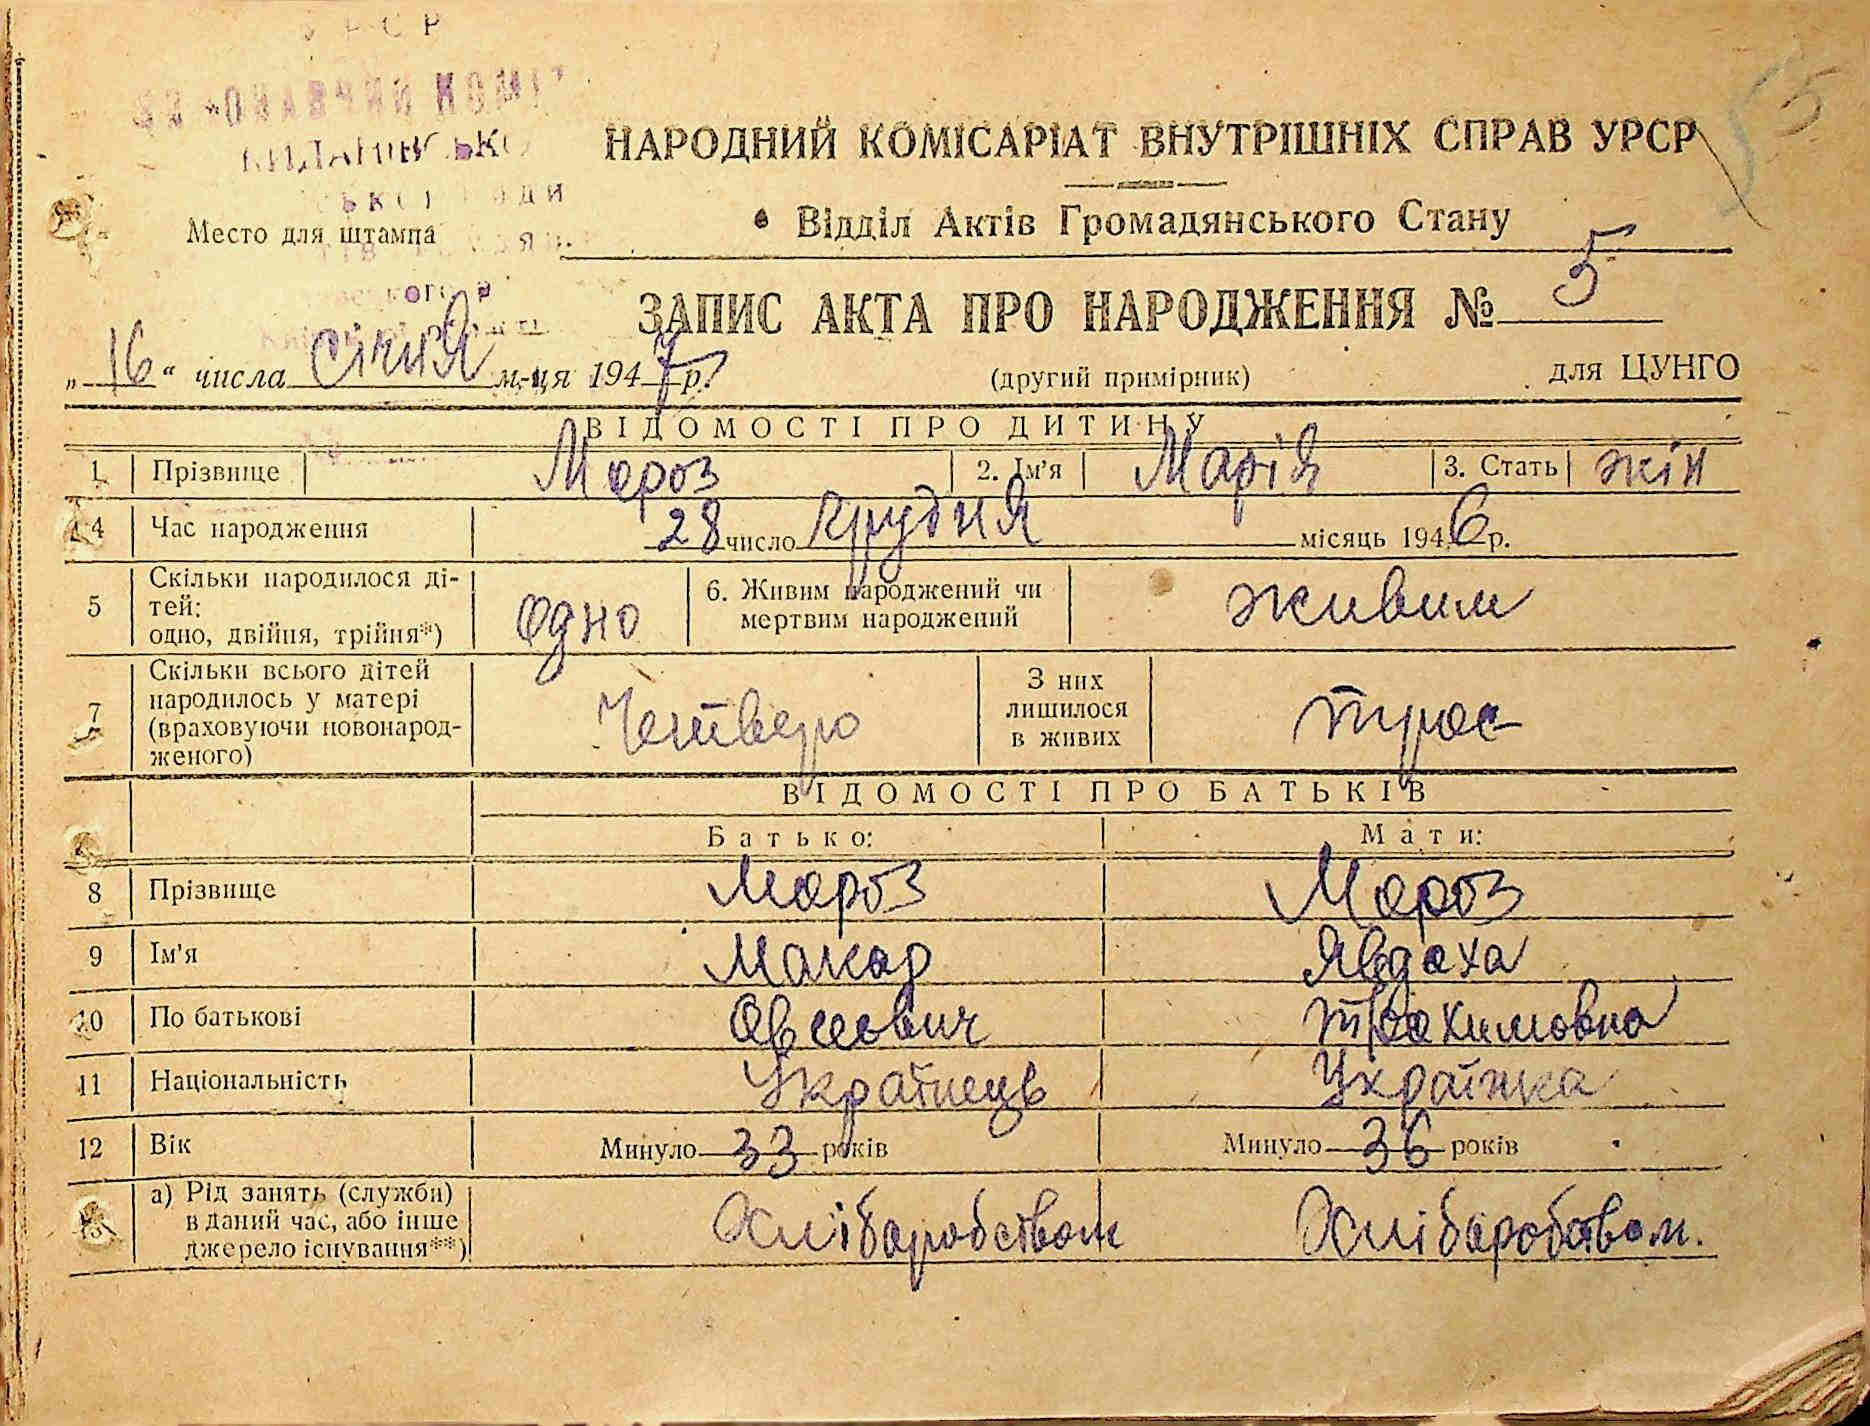 УРСР
НАРОДНИЙ КОМІСАРІАТ ВНУТРІШНІХ СПРАВ УРСР
Место для штампа
Відділ Актів Громадянського Стану
ЗАПИС АКТА ПРО НАРОДЖЕННЯ № 5
„16“ числа січня м-ця 1947 р.
(другий примірник) для ЦУНГО
ВІДОМОСТІ ПРО ДИТИНУ
1 Прізвище Мороз 2. Ім'я Марія 3. Стать жін
4 Час народження 28 число грудня місяць 1946 р.
5 Скільки народилося ді-
тей:
одно, двійня, трійня*) одно 6. Живим народжений чи
мертвим народжений живим
7 Скільки всього дітей
народилось у матері
(враховуючи новонарод-
женого) Четверо З них
лишилося
в живих троє
ВІДОМОСТІ ПРО БАТЬКІВ
Батько: Мати:
8 Прізвище Мороз Мороз
9 Ім'я Макар Явдоха
10 По батькові Овсеович Трохимовна
11 Національність Українець Українка
12 Вік Минуло 33 років Минуло 36 років
13 а) Рід занять (служби)
в даний час, або інше
джерело існування**) Хліборобством Хліборобством.